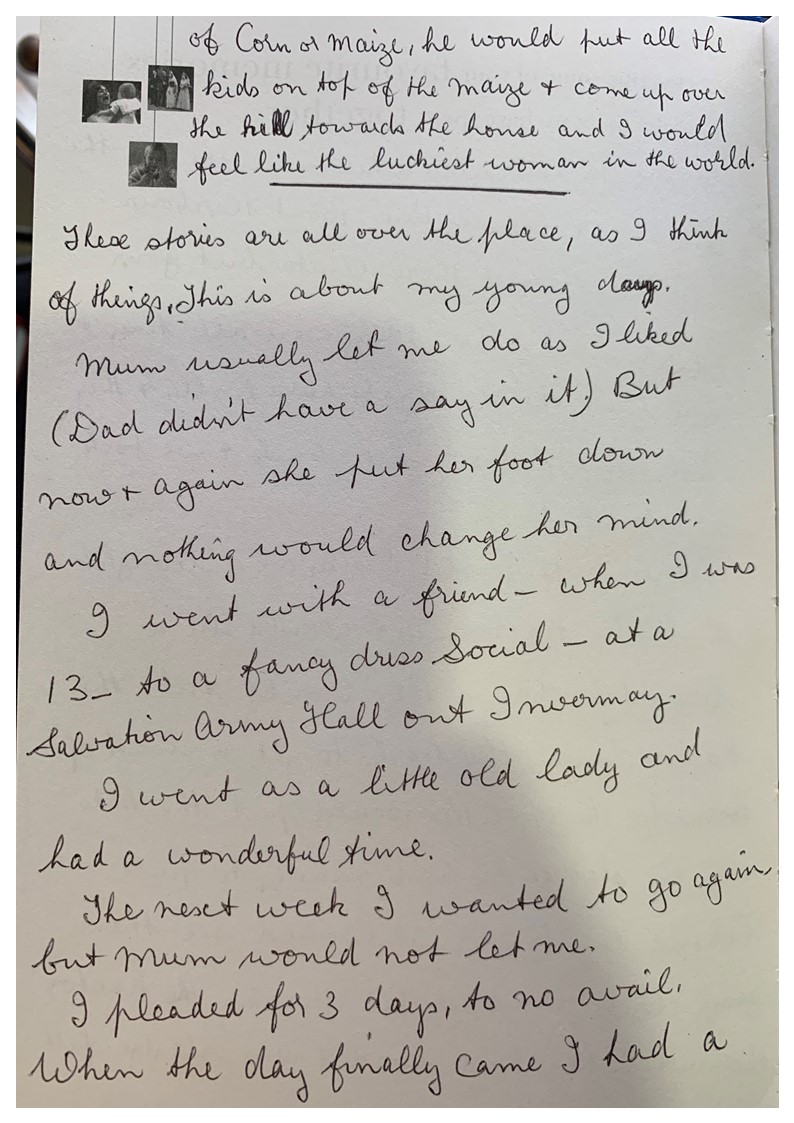 of Corn or Maize, he would put all the
kids on top of the maize + come up over
the hill towards the house and I would
feel like the luckiest woman in the world.
These stories are all over the place, as I think
of things. This is about my young days.
Mum usually let me do as I liked
(Dad didn't have a say in it.) But
now + again she put her foot down
and nothing would change her mind.
I went with a friend - when I was
13 - to a fancy dress Social - at a
Salvation Army Hall out Invermay.
I went as a little old lady and
had a wonderful time.
The next week I wanted to go again,
but Mum would not let me.
I pleaded for 3 days, to no avail.
When the day finally came I had a